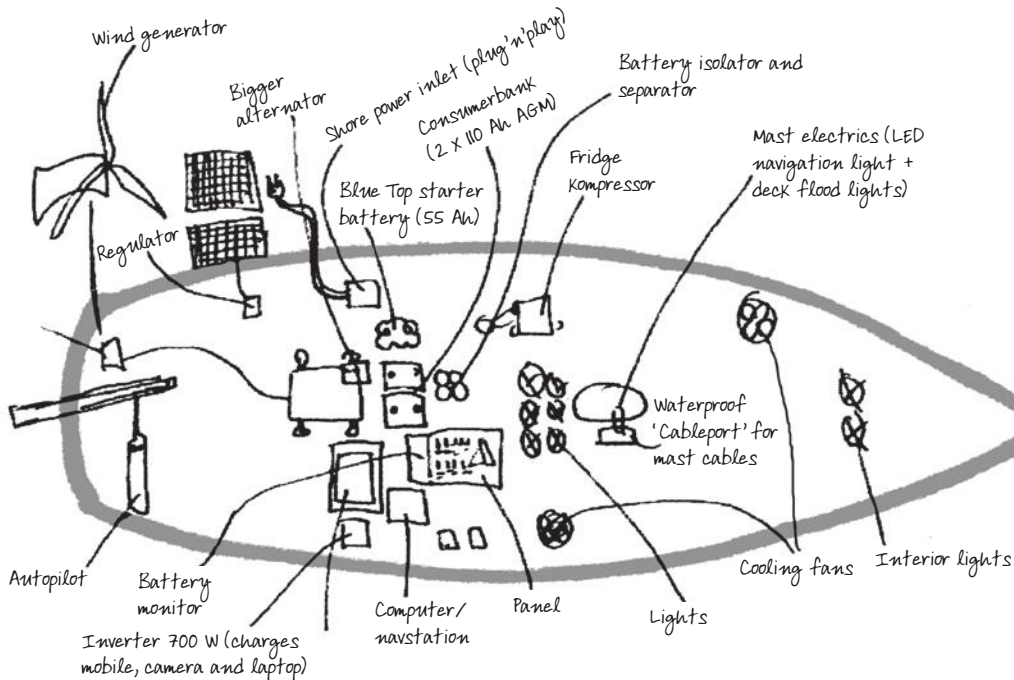 Wind generator
Bigger
alternator
Shore power inlet (plug'n'play)
Consumerbank
(2 x 110 Ah AGM)
Battery isolator and
separator
Mast electrics (LED
navigation light +
deck flood lights)
Fridge
Kompressor
Blue Top starter
battery (55 Ah)
Regulator
Waterproof
'Cableport' for
mast cables
Autopilot
Battery
monitor
Inverter 700 W (charges
mobile, camera and laptop)
Computer/
navstation
Panel
Lights
Cooling fans
Interior lights